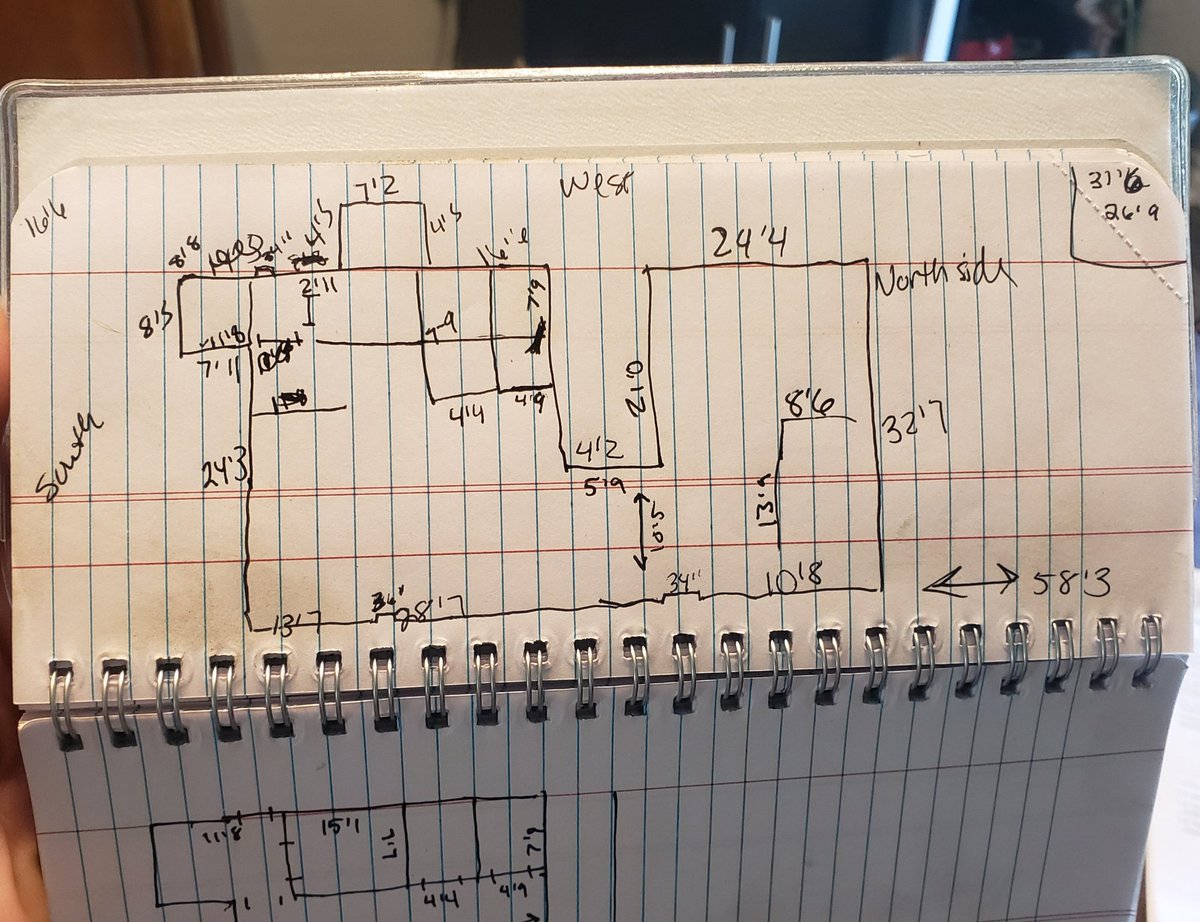 16'6
7'2
West
31'6
26'9
8'8
4'5
4'5
24'4
2'11
7'9
North side
8'5
11'8
7'11
4'4
4'9
21'0
8'6
32'7
South
24'3
4'2
5'9
10'5
13'9
34"
10'8
58'3
13'7
28'7
11'8
15'1
7'9
4'4
4'9